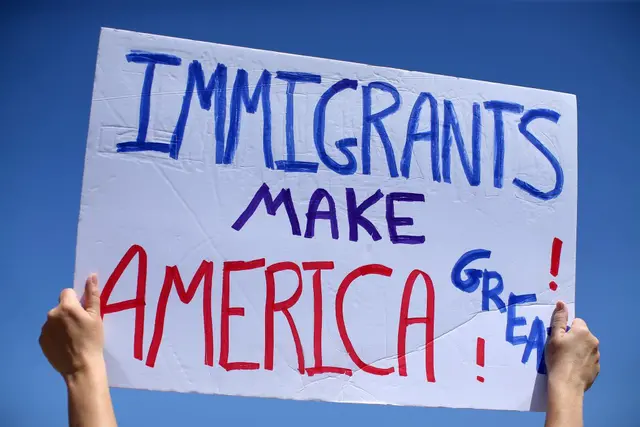 IMMIGRANTS
MAKE
AMERICA
GREA
!
!